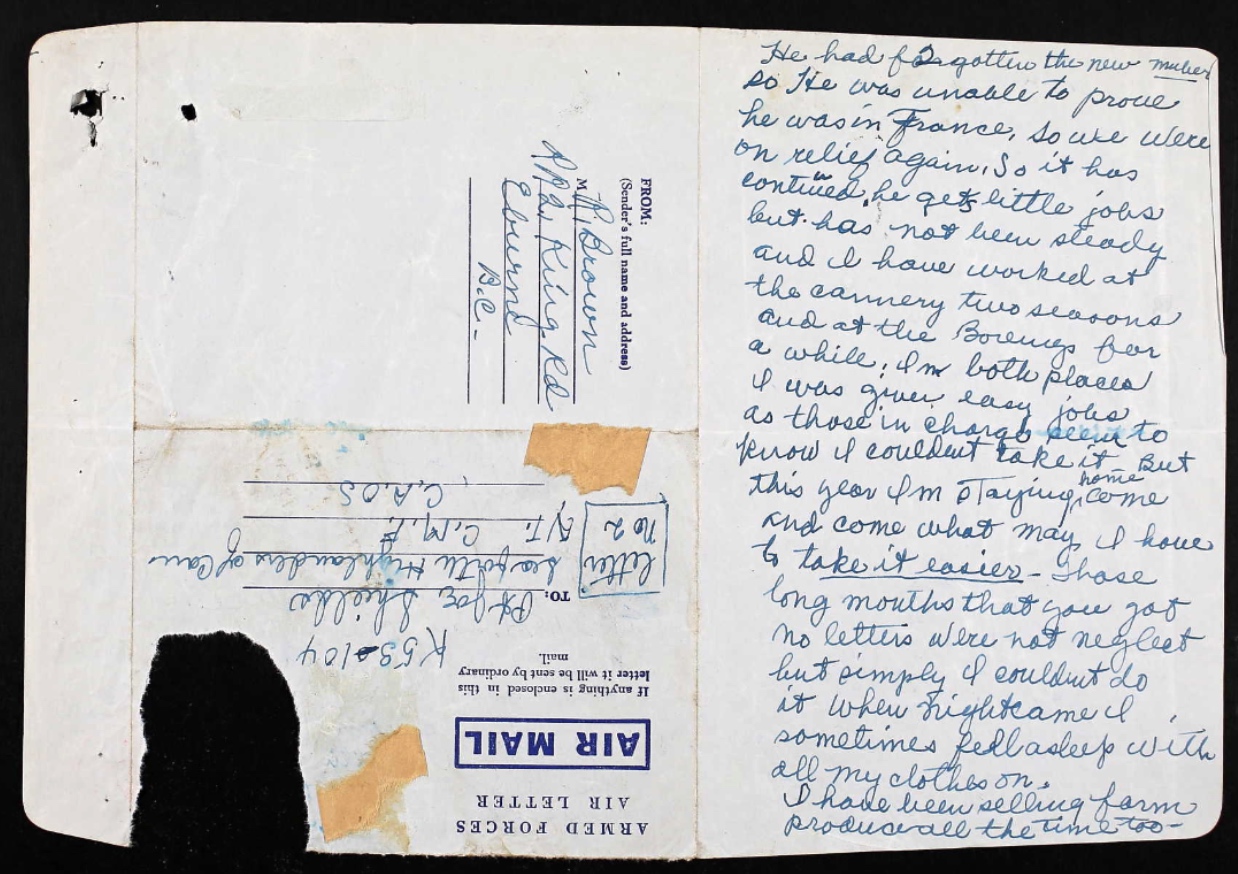 He had forgotten the new
so He was unable to prove
he was in France, so we were
on relief again. So it has
continued, he gets little jobs
but has not been steady
and I have worked at
the cannery two seasons
and at the Boeings for
a while; In both places
I was given easy jobs
as those in charge seem to
know I couldent take it But
this year Im staying home come
and come what may I have
to take it easier - Those
long months that you got
no letters were not neglect
but simply I couldent do
it when night came I
sometimes fell asleep with
all my clothes on.
I have been selling farm
produce all the time too-
FROM:
(Sender's full name and address)
M Brown
RR2. King Rd
Eburne
B.C.-
ARMED FORCES
AIR LETTER
AIR MAIL
If anything is enclosed in this
letter it will be sent by ordinary
mail.
K53104
TO: Pt Joe Shields
Seaforth Highlanders of Can
C.M.F.
C.A.OS
letter
no 2